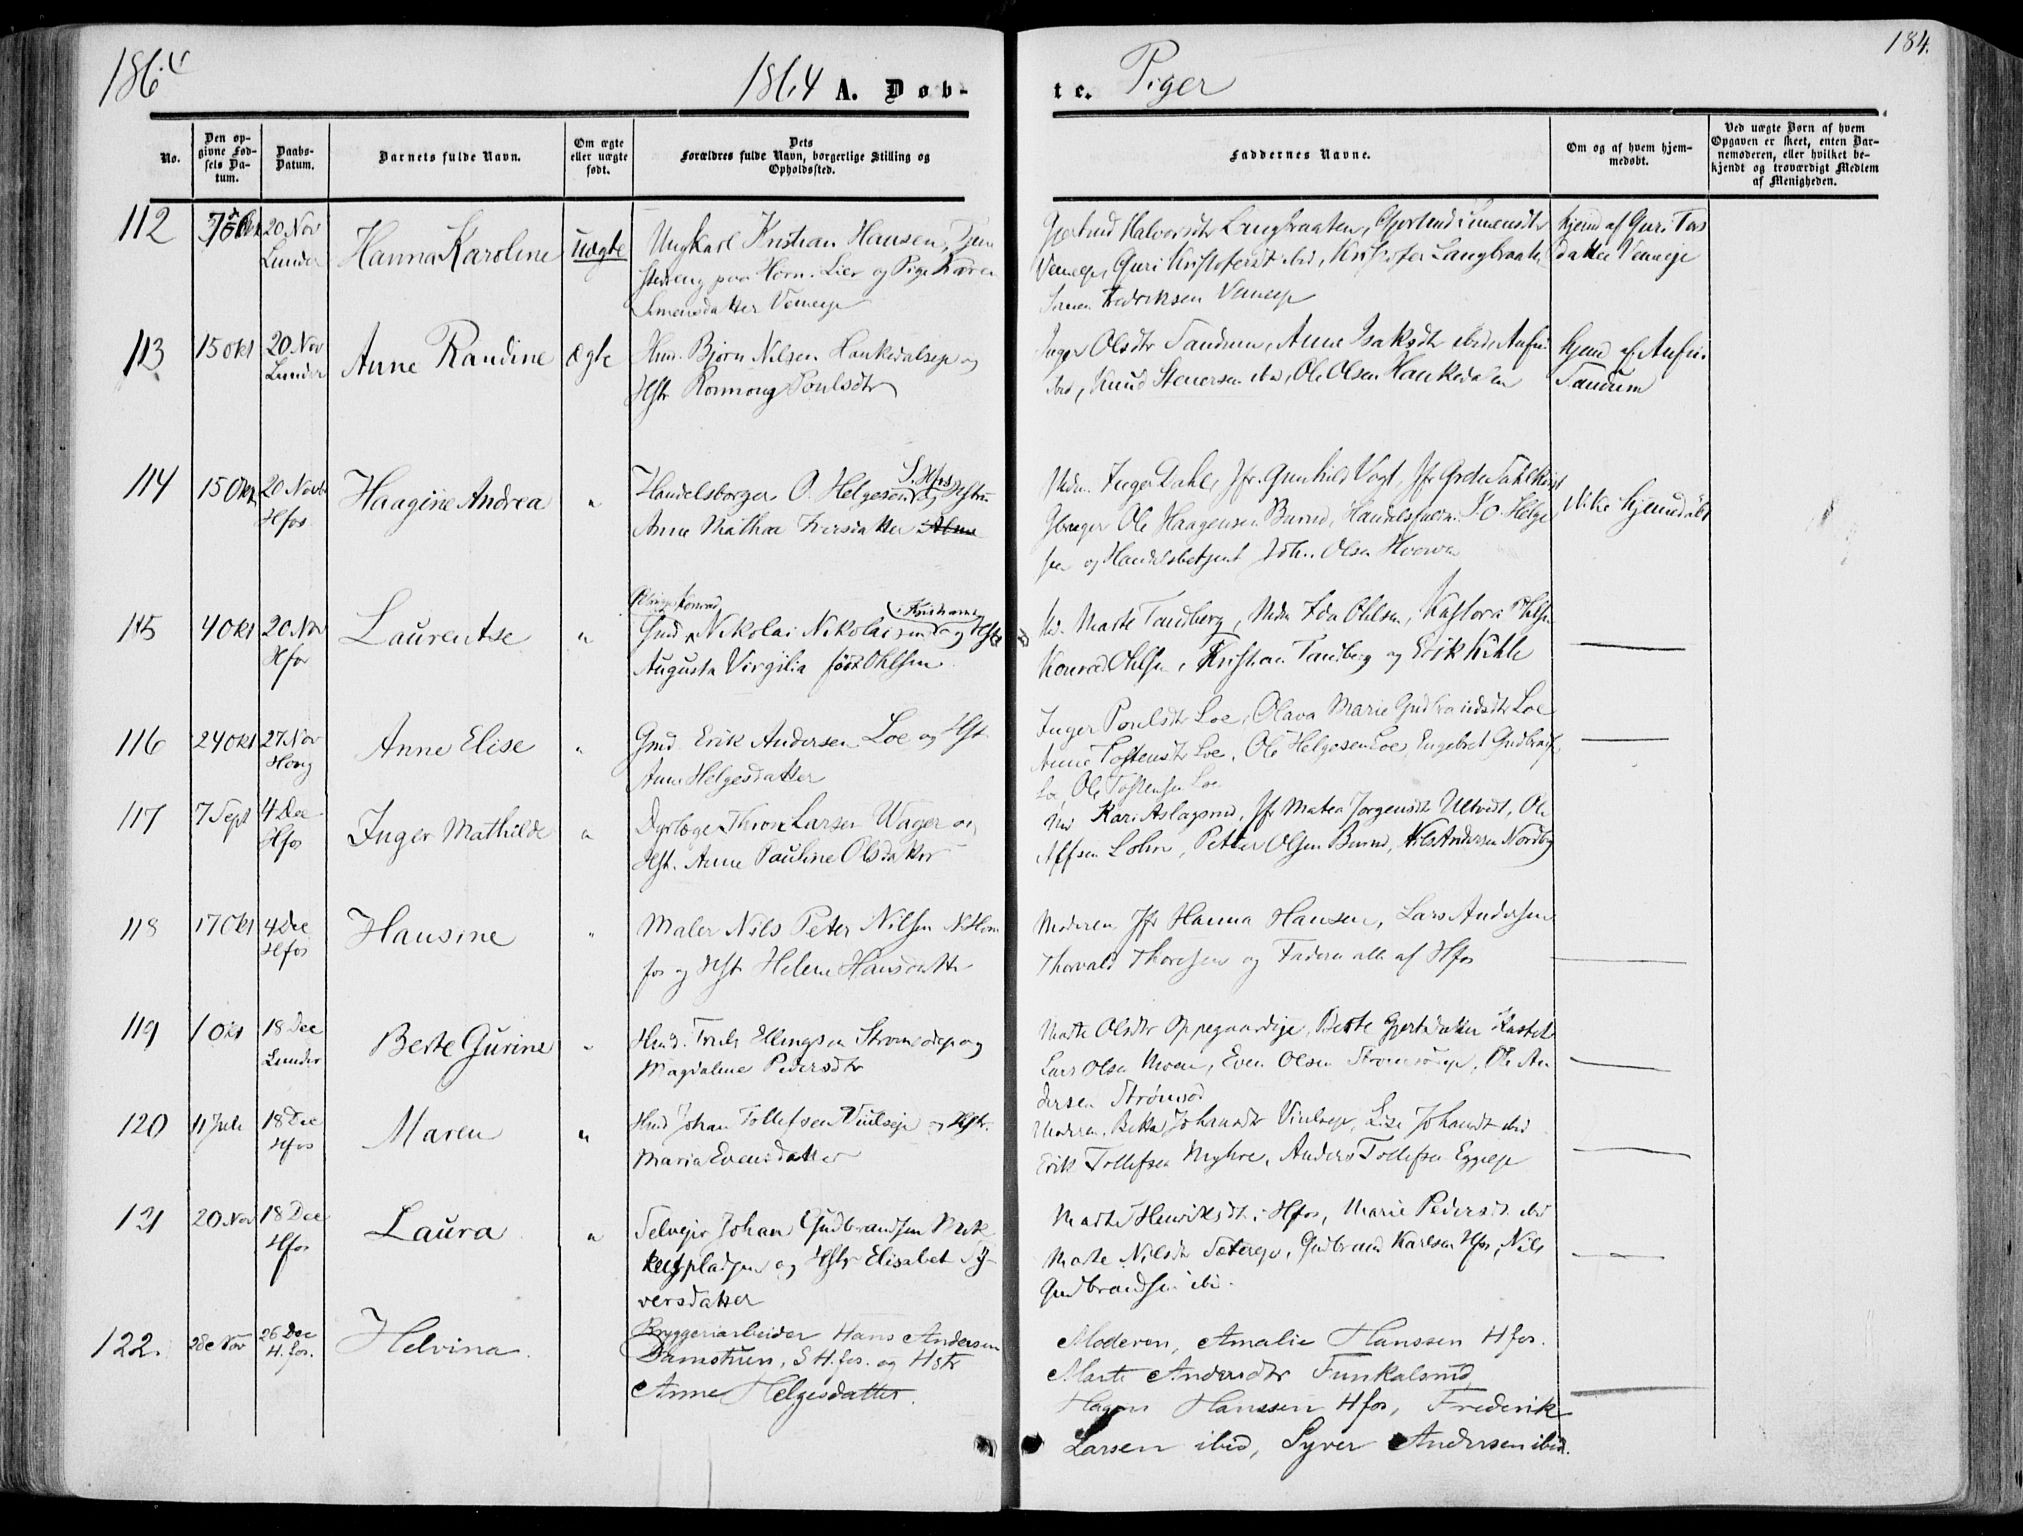 1864
1864 A. Døb-
te. Piger
184.
No.
Den op-
givne Fød-
sels Da-
tum.
Daabs-
Datum.
Barnets fulde Navn.
Om ægte
eller uægte
født.
Dets
Forældres fulde Navn, borgerlige Stilling og
Opholdssted.
Faddernes Navne.
Om og af hvem hjem-
medøbt.
Ved uægte Børn af hvem
Opgaven er skeet, enten Bar-
nemoderen, eller hvilket be-
kjendt og troværdigt Medlem
af Menigheden.
112
20 Nov
Lunder
Hanna Karoline
Uægte
Ungkarl Kristian Hansen, Tjene
stedreng paa Horn. Lier og Pige Karen
Simensdatter Vemeje
Gjertrud Halvorsdtr Langbraaten, Gjertrud Simensdtr
Vemeje, Guri Kristofersdt ibid, Kristofer Langbraaten
Fredriksen Vemeje
hjemd af Guri Tors
datter Vemeje
113
15 Okt
20 Nov
Lunder
Anne Randine
Ægte
Hm. Bjørn Nilsen Hankedalseje og
Hstr Ronnoug Poulsdtr
Inger Olsdtr Tandum, Anne Isaksdtr ibid, Anfin
ibid, Knud Steuersen ibid, Ole Olsen Hankedalen
hjemd af Anfin
Tandum
114
15 Okt
20 Novb
Hfos
Haagine Andrea
"
Handelsborger O. Helgesen S. Hfos og Hstru
Anne Mathea Iversdatter
Mdm. Inger Dahl, Jfr. Gunhild Vogt, Jfr Grete Dahlkvist
Gbruger Ole Haagensen Burud, Handelsfuldm. P. O. Helge
sen og Handelsbetjent Joh. Olsen Hverven
ikke hjemmedøbt
115
4 Okt
20 Nov
Hfos
Laurentse
"
Konrad
Kristiania
Gmd Nikolai Nikolaisen og Hstr
Augusta Virgilia født Ohlsen
Marte Tandberg, Mdm Ida Ohlsen, Kastora Ohlsen
Konrad Ohlsen, Kristian Tandberg og Erik Kihle
116
24 Okt
27 Nov
Houg
Anne Elise
"
Gmd Erik Andersen Loe og Hst
Anne Helgesdatter
Inger Poulsdtr Loe, Olava Marie Gudbrandsdtr Loe
Anne Tostensdtr Loe, Ole Helgesen Loe, Engebret Gudbrands
Loe Ole Tostensen Loe
117
7 Sept
4 Dec
Hfos
Inger Mathilde
"
Dyrlæge Thron Larsen Wager og
Hst. Anne Pauline Olsdatter
Md Kari Aslagsrud, Jfr Matea Jorgensdtr Ultvedt, Ole
Affsen Lohre, Petter Olsen Burud, Nils Andersen Nordby
118
17 Okt
4 Dec
Hfos
Hansine
"
Maler Nils Peter Nilsen N. Høne
fos og Hstr Helene Hansdatter
Moderen Jfr Hanna Hansen, Lars Andersen
Thorvald Thoresen og Faderen alle af Hfos
119
1 Okt
18 Dec
Lunder
Berte Gurine
"
Hmd. Truls Ellingsen Stromsodeje og
Magdalene Pedersdtr
Marte Olsdtr Oppegaardeje, Berte Gjertsdatter Kastet
Lars Olsen Moen, Even Olsen Stromsodeje, Ole An
dersen Strømsod
120
11 Juli
18 Dec
Hfos
Maren
"
Hmd Johan Tollefsen Viulseje og Hstr.
Maria Evensdatter
Moderen, Berta Johansdtr Viulseje, Lise Johansdt ibid
Erik Tollefsen Myhre, Anders Tollefsen Eggeeje
121
20 Nov
18 Dec
Hfos
Laura
"
Selvejer Johan Gudbrandsen Mørk
Kulpladsen og Hstr Elisabet Sy-
versdatter
Marte Henriksdt i Hfos, Marie Pedersdt ibid
Marte Nilsdtr Sætereje, Gudbrand Karlsen Hfos, Nils
Gudbrandsen ibid.
122.
28e Nov
26 Dec
H. fos.
Helvina.
Bryggeriarbeider Hans Andersen
Damstuen, S H. fos. og Hstr
Anne Helgesdatter.
Moderen, Amalie Hanssen Hfos.
Marte Andersdtr Funkalsrud
Hagen Hanssen Hfos, Frederik
Larsen ibid, Syver Andersen ibid.